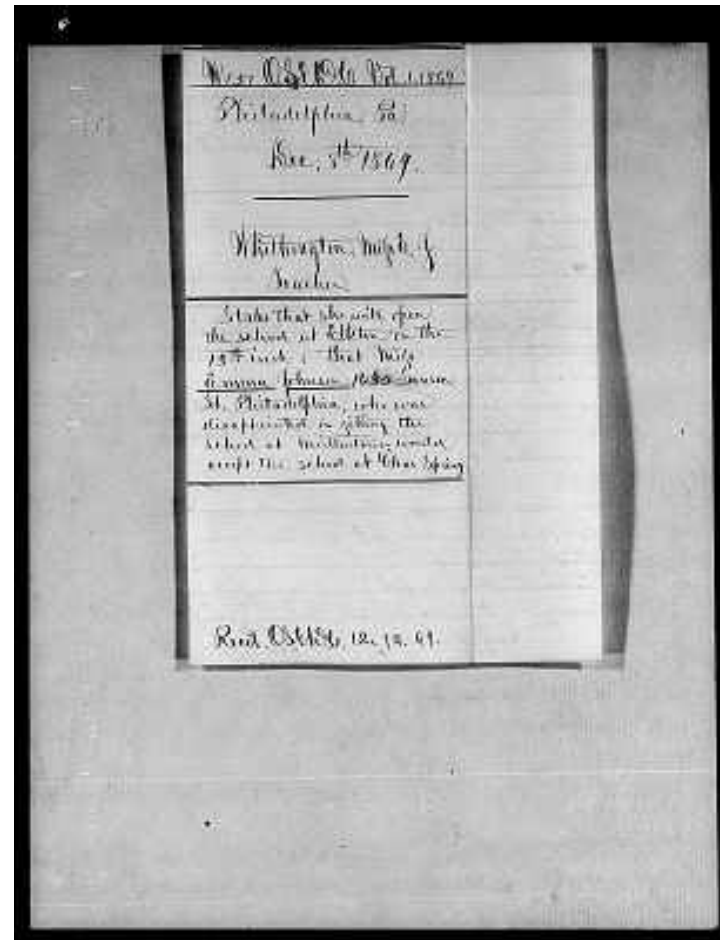 Vol. 1. 1869
Philadelphia Pa.
Dec. 8th 1869.
Whithington, Miss
Teacher
States that she will open
the school at Elkton on the
13th inst; that Miss
Johnson
St. Philadelphia, who was
disappointed in getting the
school at would
accept the school at Clear Spring
Recd. 12. 69.